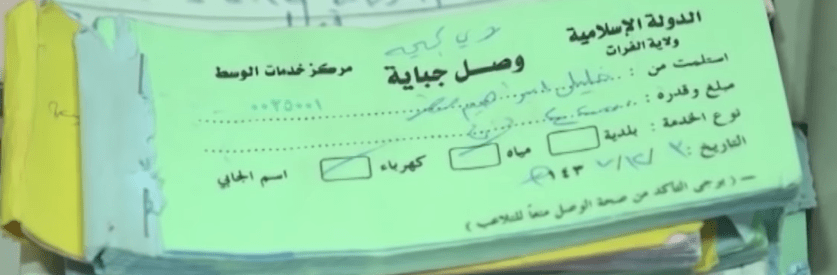 الدولة الإسلامية
ولاية الفرات
وصل جباية
مركز خدمات الوسط
استلمت من :
0025001
مبلغ وقدره :
نوع الخدمة : بلدية مياه كهرباء اسم الجابي
التاريخ : ١٤٣
( يرجى التأكد من صحة الوصل منعاً للتلاعب )